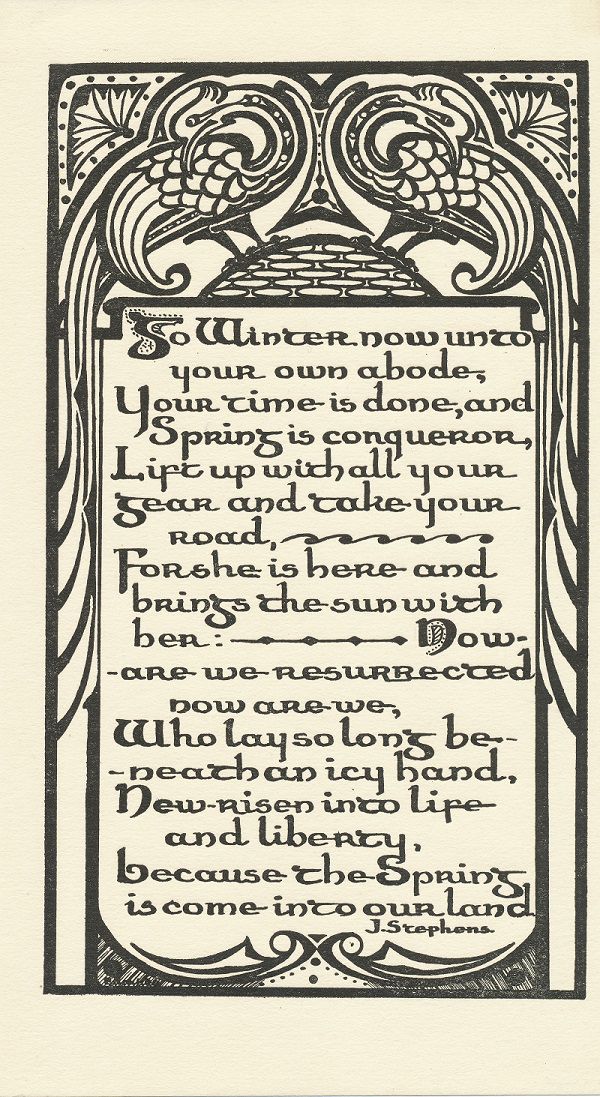 So Winter now unto
your own abode,
Your time is done, and
Spring is conqueror,
Lift up with all your
gear and take your
road,
For she is here and
brings the sun with
her: Now
are we resurrected
now are we,
Who lay so long be-
-neath an icy hand,
New-risen into life
and liberty,
because the Spring
is come into our land
J. Stephens